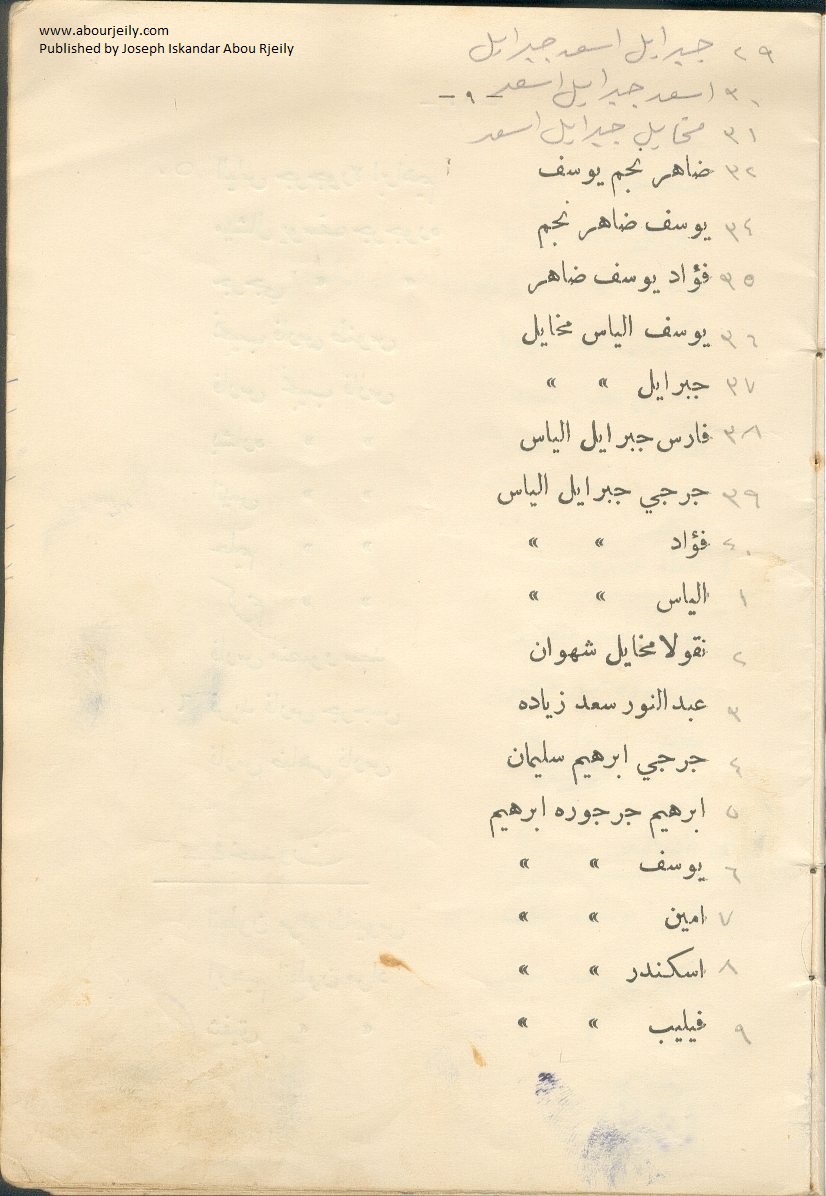 www.abourjeily.com
Published by Joseph Iskandar Abou Rjeily
٢٩ جبرايل اسعد جبرايل
٣٠ اسعد جبرايل اسعد
— ٩ —
٣١ مخايل جبرايل اسعد
٣٢ ضاهر نجم يوسف
٣٤ يوسف ضاهر نجم
٣٥ فؤاد يوسف ضاهر
٣٦ يوسف الياس مخايل
٣٧ جبرايل » »
٣٨ فارس جبرايل الياس
٣٩ جرجي جبرايل الياس
٤٠ فؤاد » »
١ الياس » »
٢ نقولا مخايل شهوان
٣ عبد النور سعد زياده
٤ جرجي ابرهيم سليمان
٥ ابرهيم جرجوره ابرهيم
٦ يوسف » »
٧ امين » »
٨ اسكندر » »
٩ فيليب » »